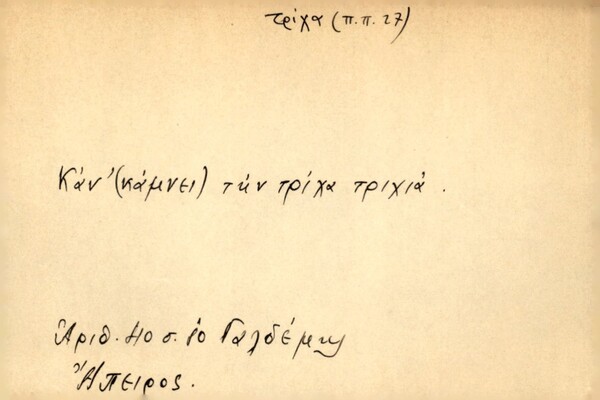 τρίχα (π.π. 27)
Κάν' (κάμνει) τὴν τρίχα τριχιά.
Ἀριθ. 40 σ. Γαλδέμης
Ἤπειρος.